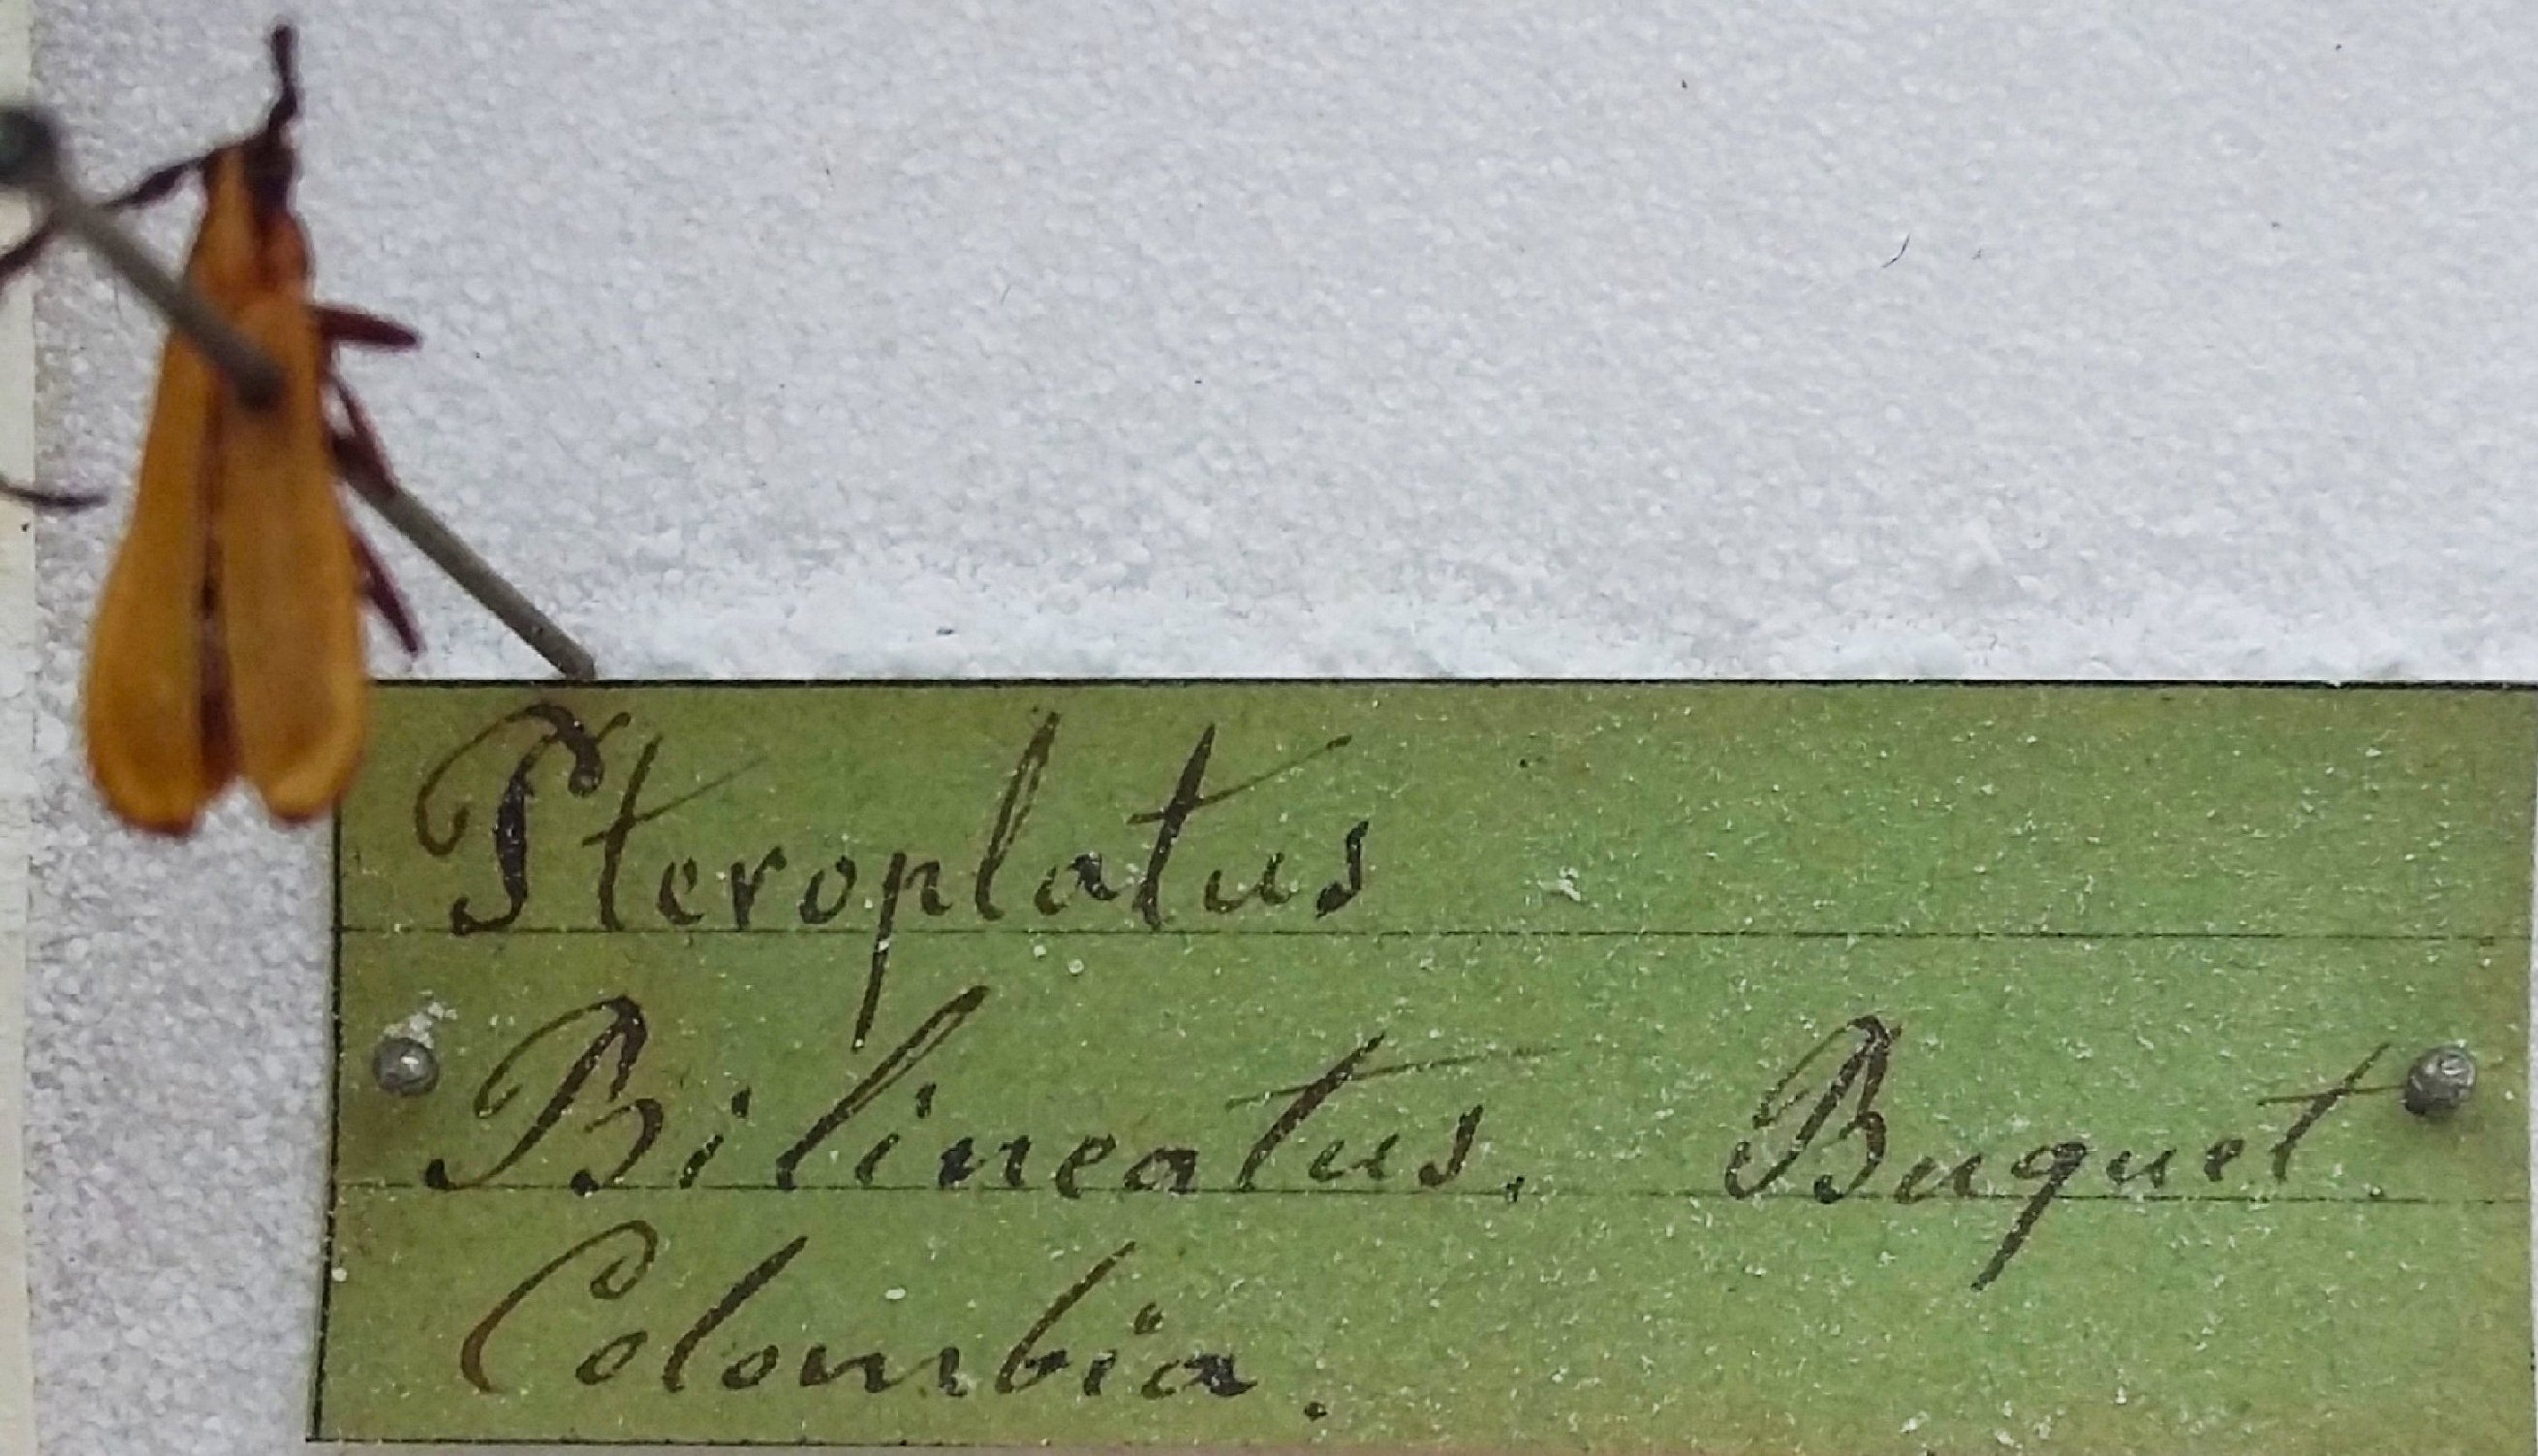 Pteroplatus
Bilineatus. Buquet.
Colombia.